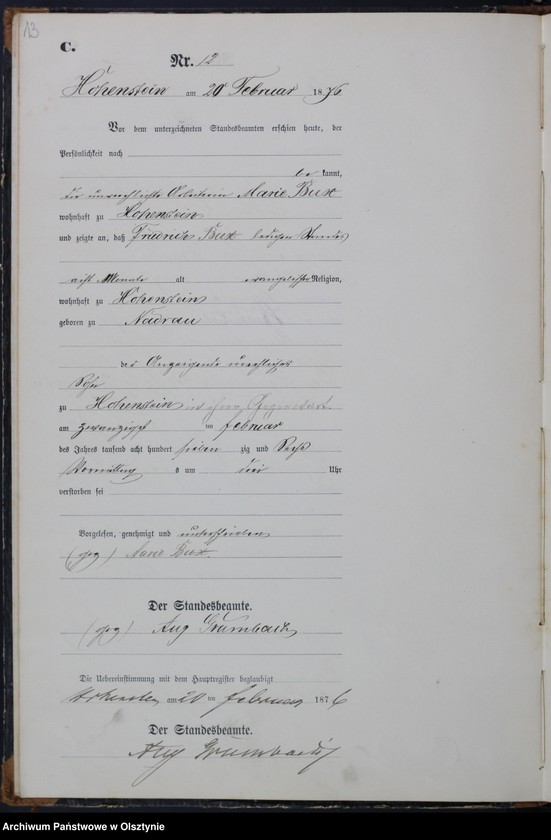 13
C.
Nr. 12
Hohenstein am 20 Februar 1876
Vor dem unterzeichneten Standesbeamten erschien heute, der
Persönlichkeit nach
be kannt,
die unverehlichte Arbeiterin Marie Bux
wohnhaft zu Hohenstein
und zeigte an, daß Friedrich Bux ledigen Standes
acht Monate alt evangelischer Religion,
wohnhaft zu Hohenstein
geboren zu Nadrau
der Anzeigende unehlicher
Sohn
zu Hohenstein in ihrer Gegenwart
am zwanzigst im februar
des Jahres tausend acht hundert sieben zig und Sechs
Vormittag s um drei Uhr
verstorben sei
Vorgelesen, genehmigt und unterschrieben
(gez) Marie Bux.
Der Standesbeamte.
(gez) Aug Grumbach
Die Uebereinstimmung mit dem Hauptregister beglaubigt
am 20 ten februar 1876
Der Standesbeamte.
Aug Grumbach
Archiwum Państwowe w Olsztynie